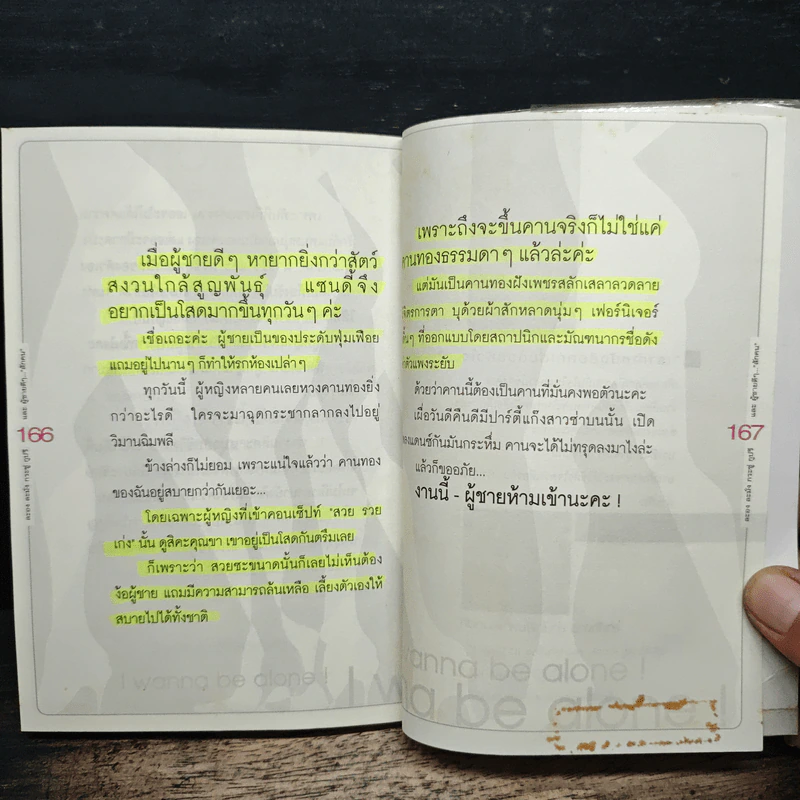 เมื่อผู้ชายดีๆ หายากยิ่งกว่าสัตว์
สงวนใกล้สูญพันธุ์ แซนดี้จึง
อยากเป็นโสดมากขึ้นทุกวันๆ ค่ะ
เชื่อเถอะค่ะ ผู้ชายเป็นของประดับฟุ่มเฟือย
แถมอยู่ไปนานๆ ก็ทำให้รกห้องเปล่าๆ
ทุกวันนี้ ผู้หญิงหลายคนเลยหวงคานทองยิ่ง
กว่าอะไรดี ใครจะมาฉุดกระชากลากลงไปอยู่
วิมานฉิมพลี
ข้างล่างก็ไม่ยอม เพราะแน่ใจแล้วว่า คานทอง
ของฉันอยู่สบายกว่ากันเยอะ...
โดยเฉพาะผู้หญิงที่เข้าคอนเซ็ปท์ "สวย รวย
เก่ง" นั้น ดูสิคะคุณขา เขาอยู่เป็นโสดกันตรึมเลย
ก็เพราะว่า สวยซะขนาดนั้นก็เลยไม่เห็นต้อง
ง้อผู้ชาย แถมมีความสามารถล้นเหลือ เลี้ยงตัวเองให้
สบายไปได้ทั้งชาติ
I wanna be alone !
166
ละอง ละมั่ง กระซู่ กูปรี และ ผู้ชายดีๆ... "สักคน"
เพราะถึงจะขึ้นคานจริงก็ไม่ใช่แค่
คานทองธรรมดาๆ แล้วล่ะค่ะ
แต่มันเป็นคานทองฝังเพชรสลักเสลาลวดลาย
วิจิตรการตา บุด้วยผ้าสักหลาดนุ่มๆ เฟอร์นิเจอร์
ๆ ที่ออกแบบโดยสถาปนิกและมัณฑนากรชื่อดัง
ตัวแพงระยับ
ด้วยว่าคานนี้ต้องเป็นคานที่มั่นคงพอตัวนะคะ
เผื่อวันดีคืนดีมีปาร์ตี้แก๊งสาวซ่าบนนั้น เปิด
แดนซ์กันมันกระหึ่ม คานจะได้ไม่ทรุดลงมาไงล่ะ
แล้วก็ขออภัย...
งานนี้ - ผู้ชายห้ามเข้านะคะ !
wanna be alone !
be alone !
167
ละอง ละมั่ง กระซู่ กูปรี และ ผู้ชายดีๆ... "สักคน"